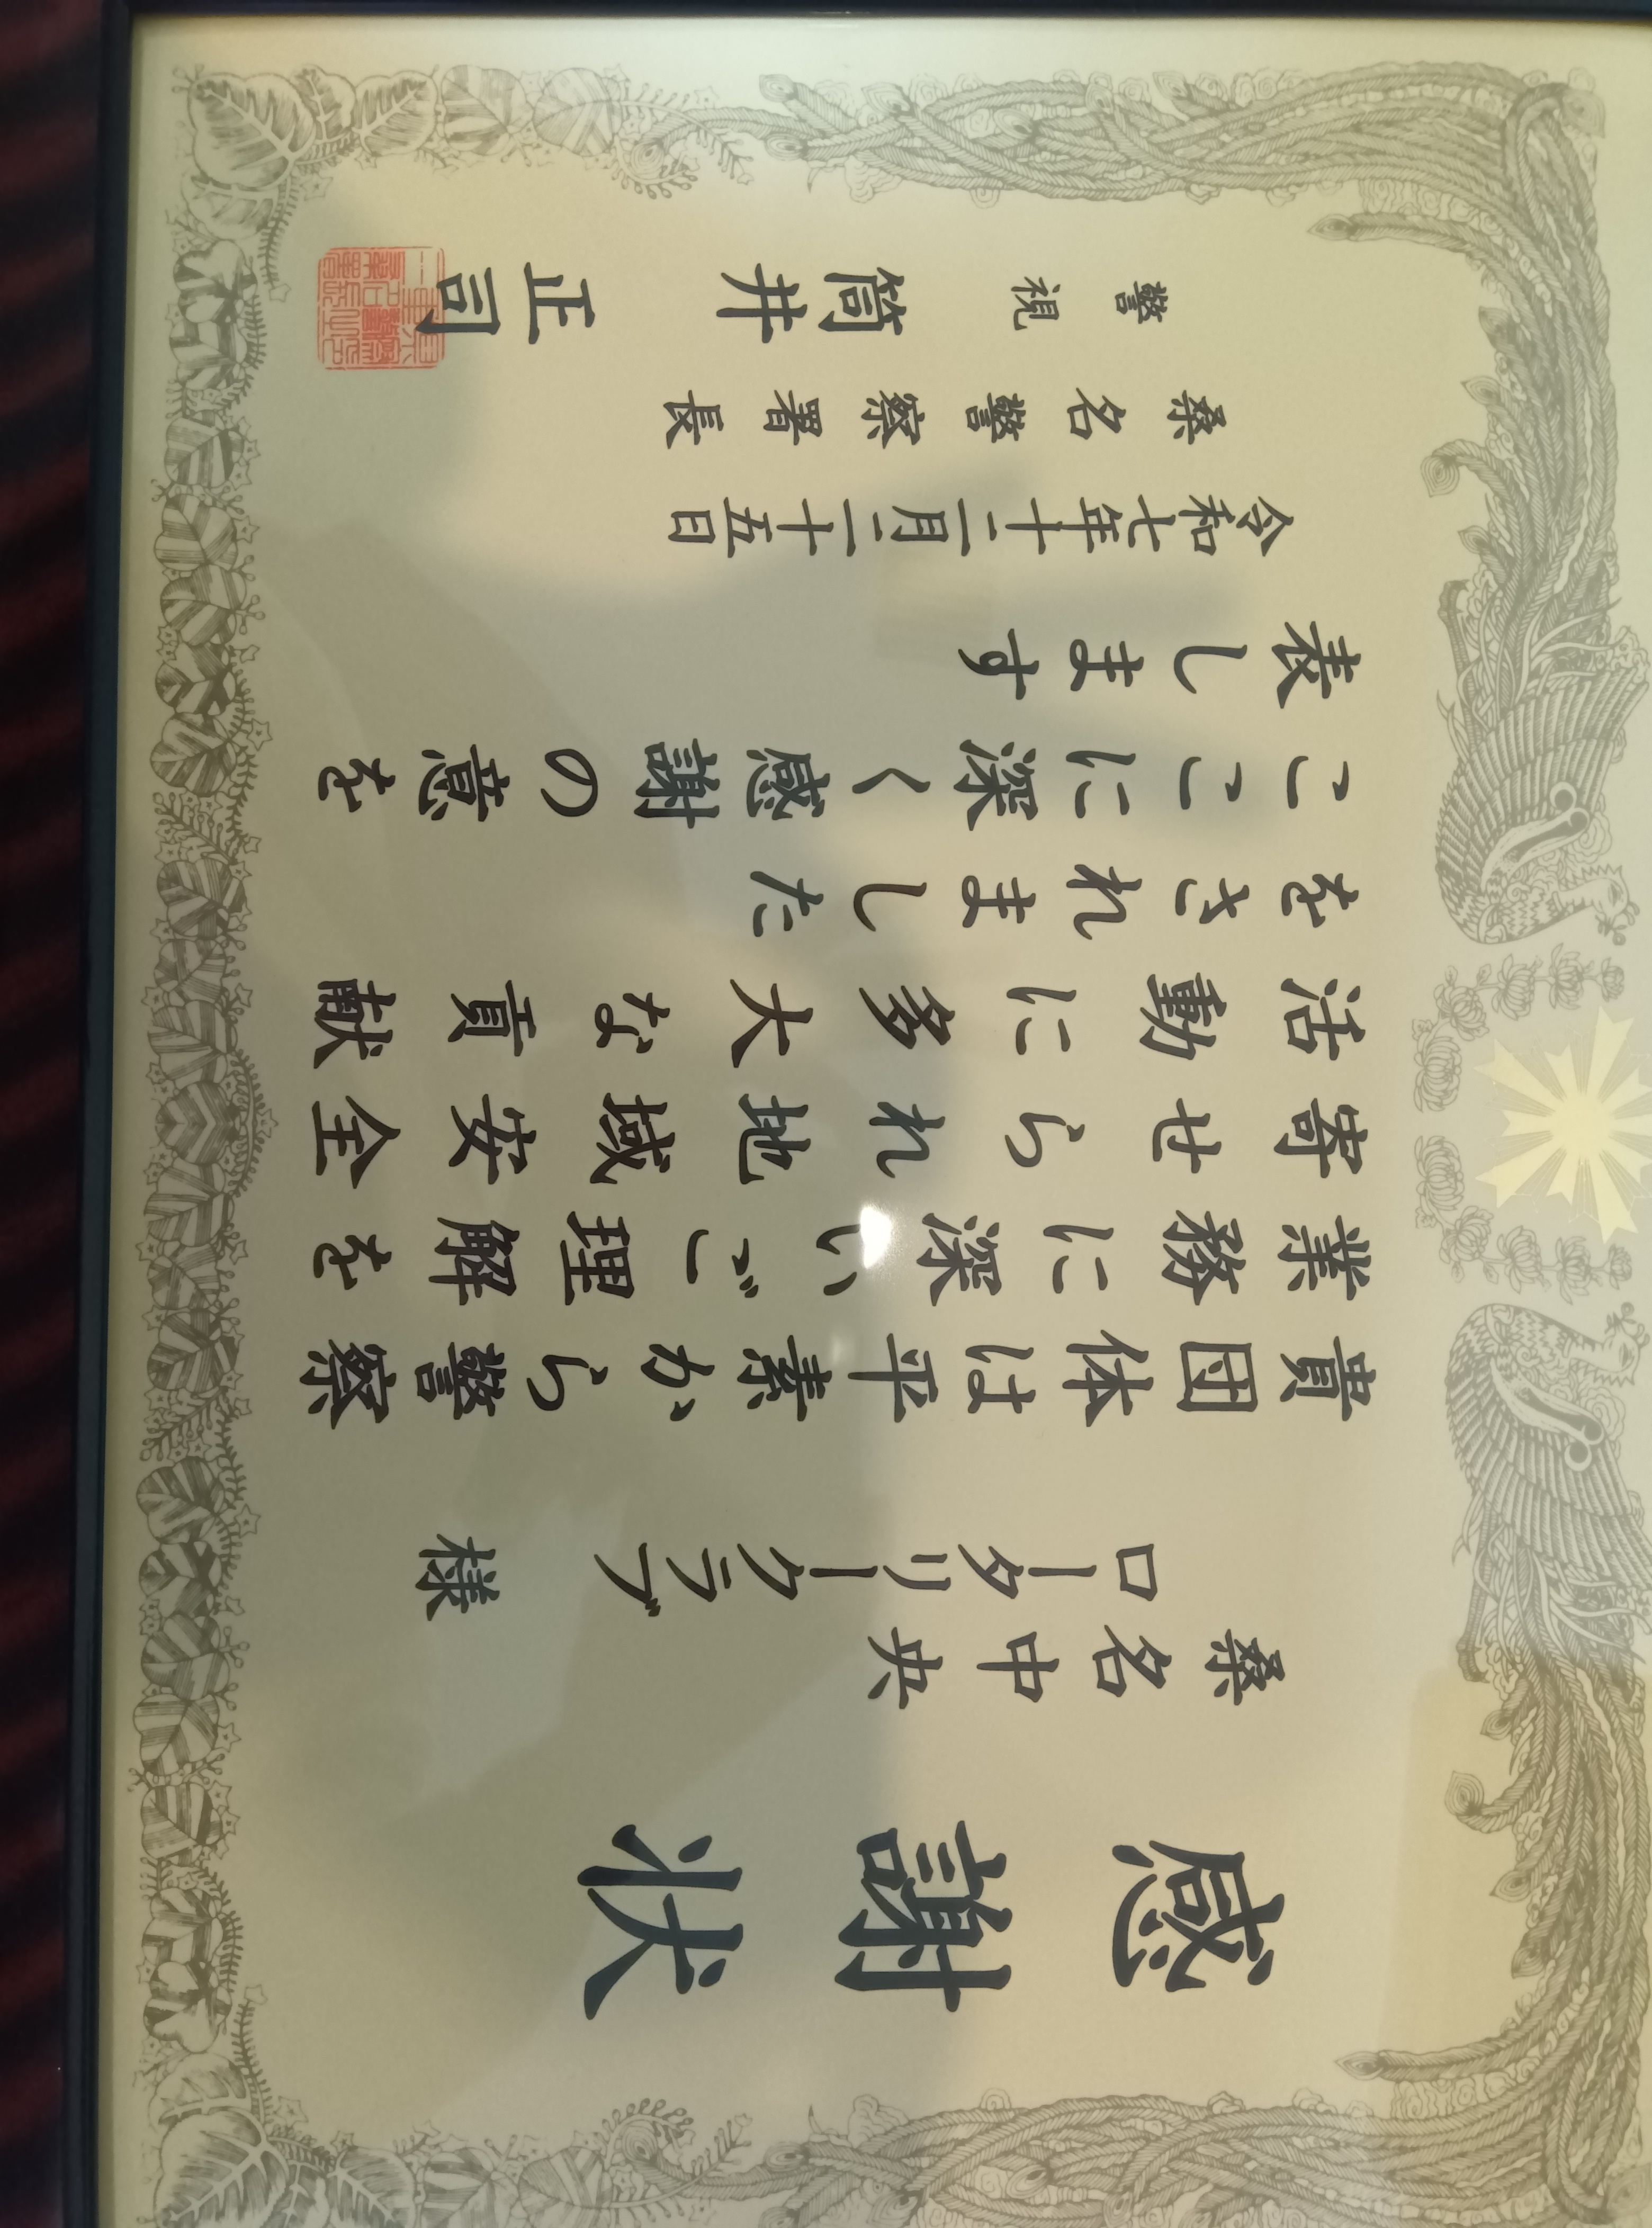 感謝状
桑名中央
ロータリークラブ 様
貴団体は平素から警察
業務に深いご理解を
寄せられ地域安全
活動に多大な貢献
をされました
ここに深く感謝の意を
表します
令和七年十二月二十五日
桑名警察署長
警視 筒井 正司